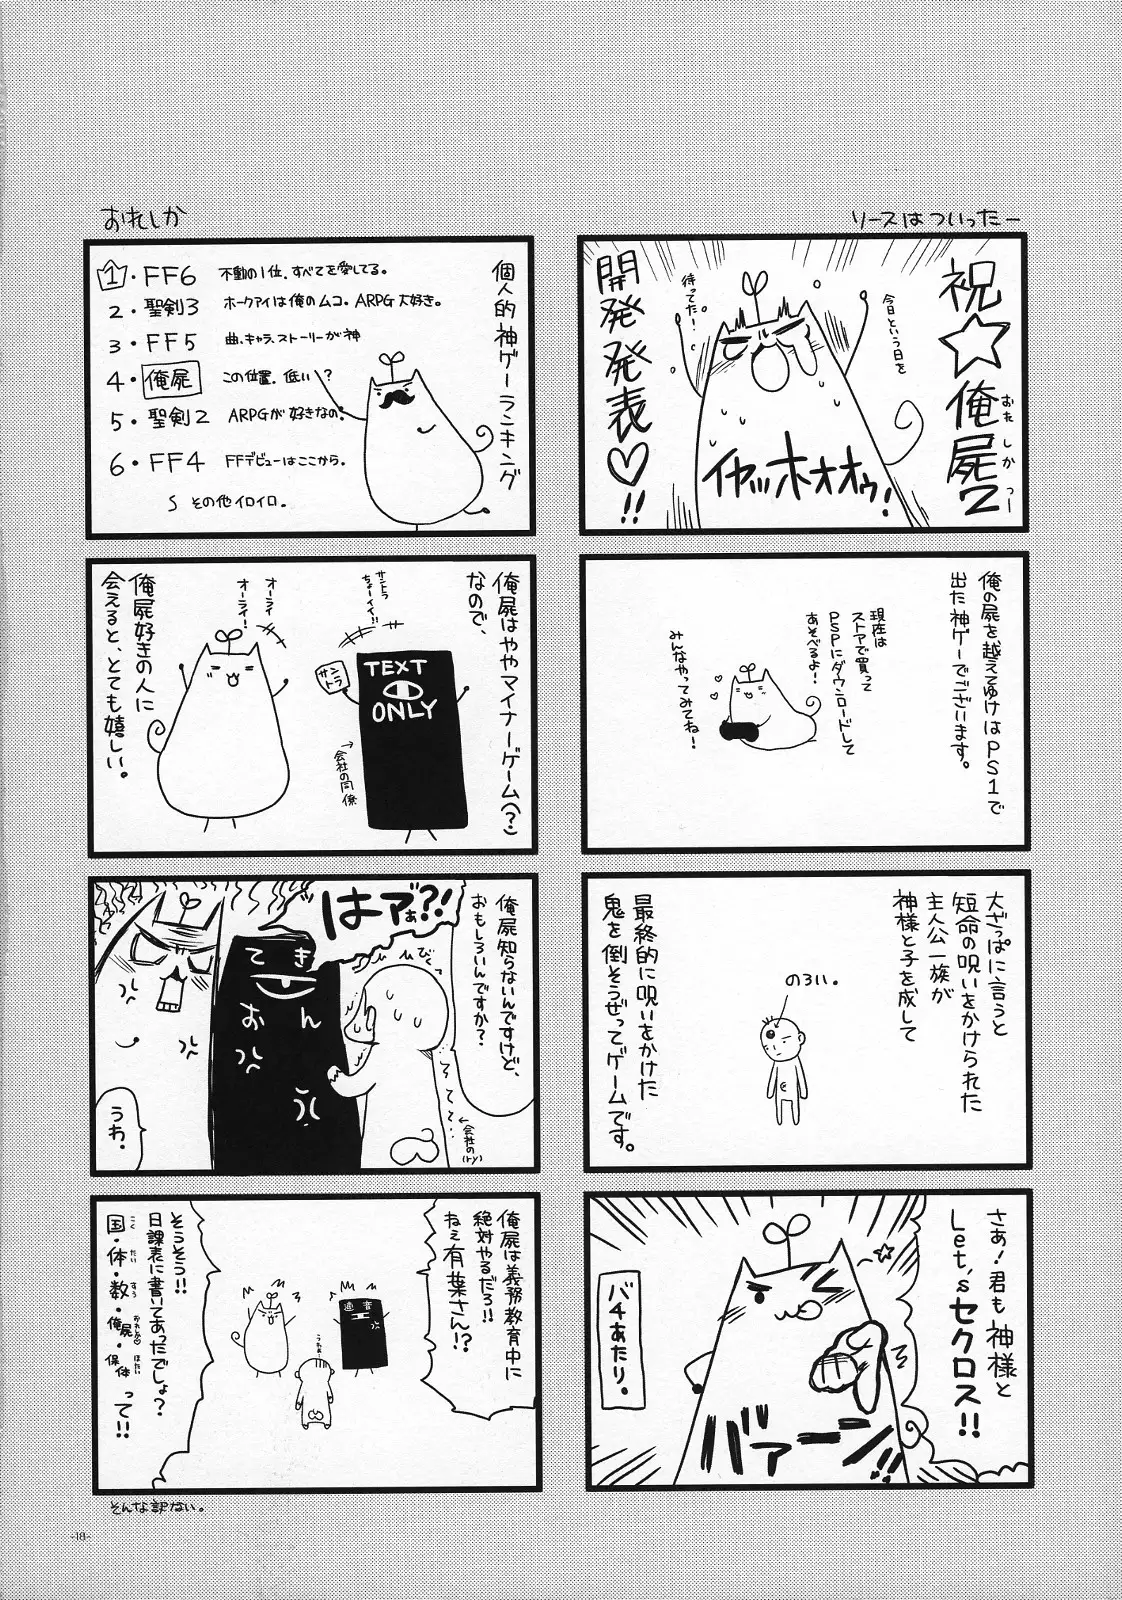 リースはついったー
祝☆俺屍2
おれしかつー
開発発表♡!!
今日という日を
待ってた!。
イヤッホオオゥ!
俺の屍を越えてゆけはPS1で
出た神ゲーでございます。
現在は
ストアで買って
PSPにダウンロードして
あそべるよ!
みんなやってみてね!
大ざっぱに言うと
短命の呪いをかけられた
主人公一族が
神様と子を成して
のろい。
最終的に呪いをかけた
鬼を倒そうぜってゲームです。
さぁ!君も神様と
Let'sセクロス!!
バチあたり。
バァーン!!
おれしか
個人的神ゲーランキング
1・FF6 不動の1位、すべてを愛してる。
2・聖剣3 ホークアイは俺のムコ。ARPG大好き。
3・FF5 曲、キャラ、ストーリーが神
4・俺屍 この位置、低い?
5・聖剣2 ARPGが好きなの。
6・FF4 FFデビューはここから。
S その他イロイロ。
俺屍はややマイナーゲーム(?)
なので、
サントラ
ちょーイイ!!
サントラ
TEXT
ONLY
←会社の同僚
オーライ
オーライ!
俺屍好きの人に
会えると、とても嬉しい。
俺屍知らないんですけど、
おもしろいんですか?
はァ゛ぁ?!
びくっ
てき
おん
うわ。
←会社の(ry)
俺屍は義務教育中に
絶対やるだろ!!
ねぇ有葉さん!?
適音
うわぁー
そうそう!!
日課表に書いてあったでしょ?
国・体・数・俺屍・保体って!!
こく たい すう おれしか ほたい
そんな訳ない。
-18-